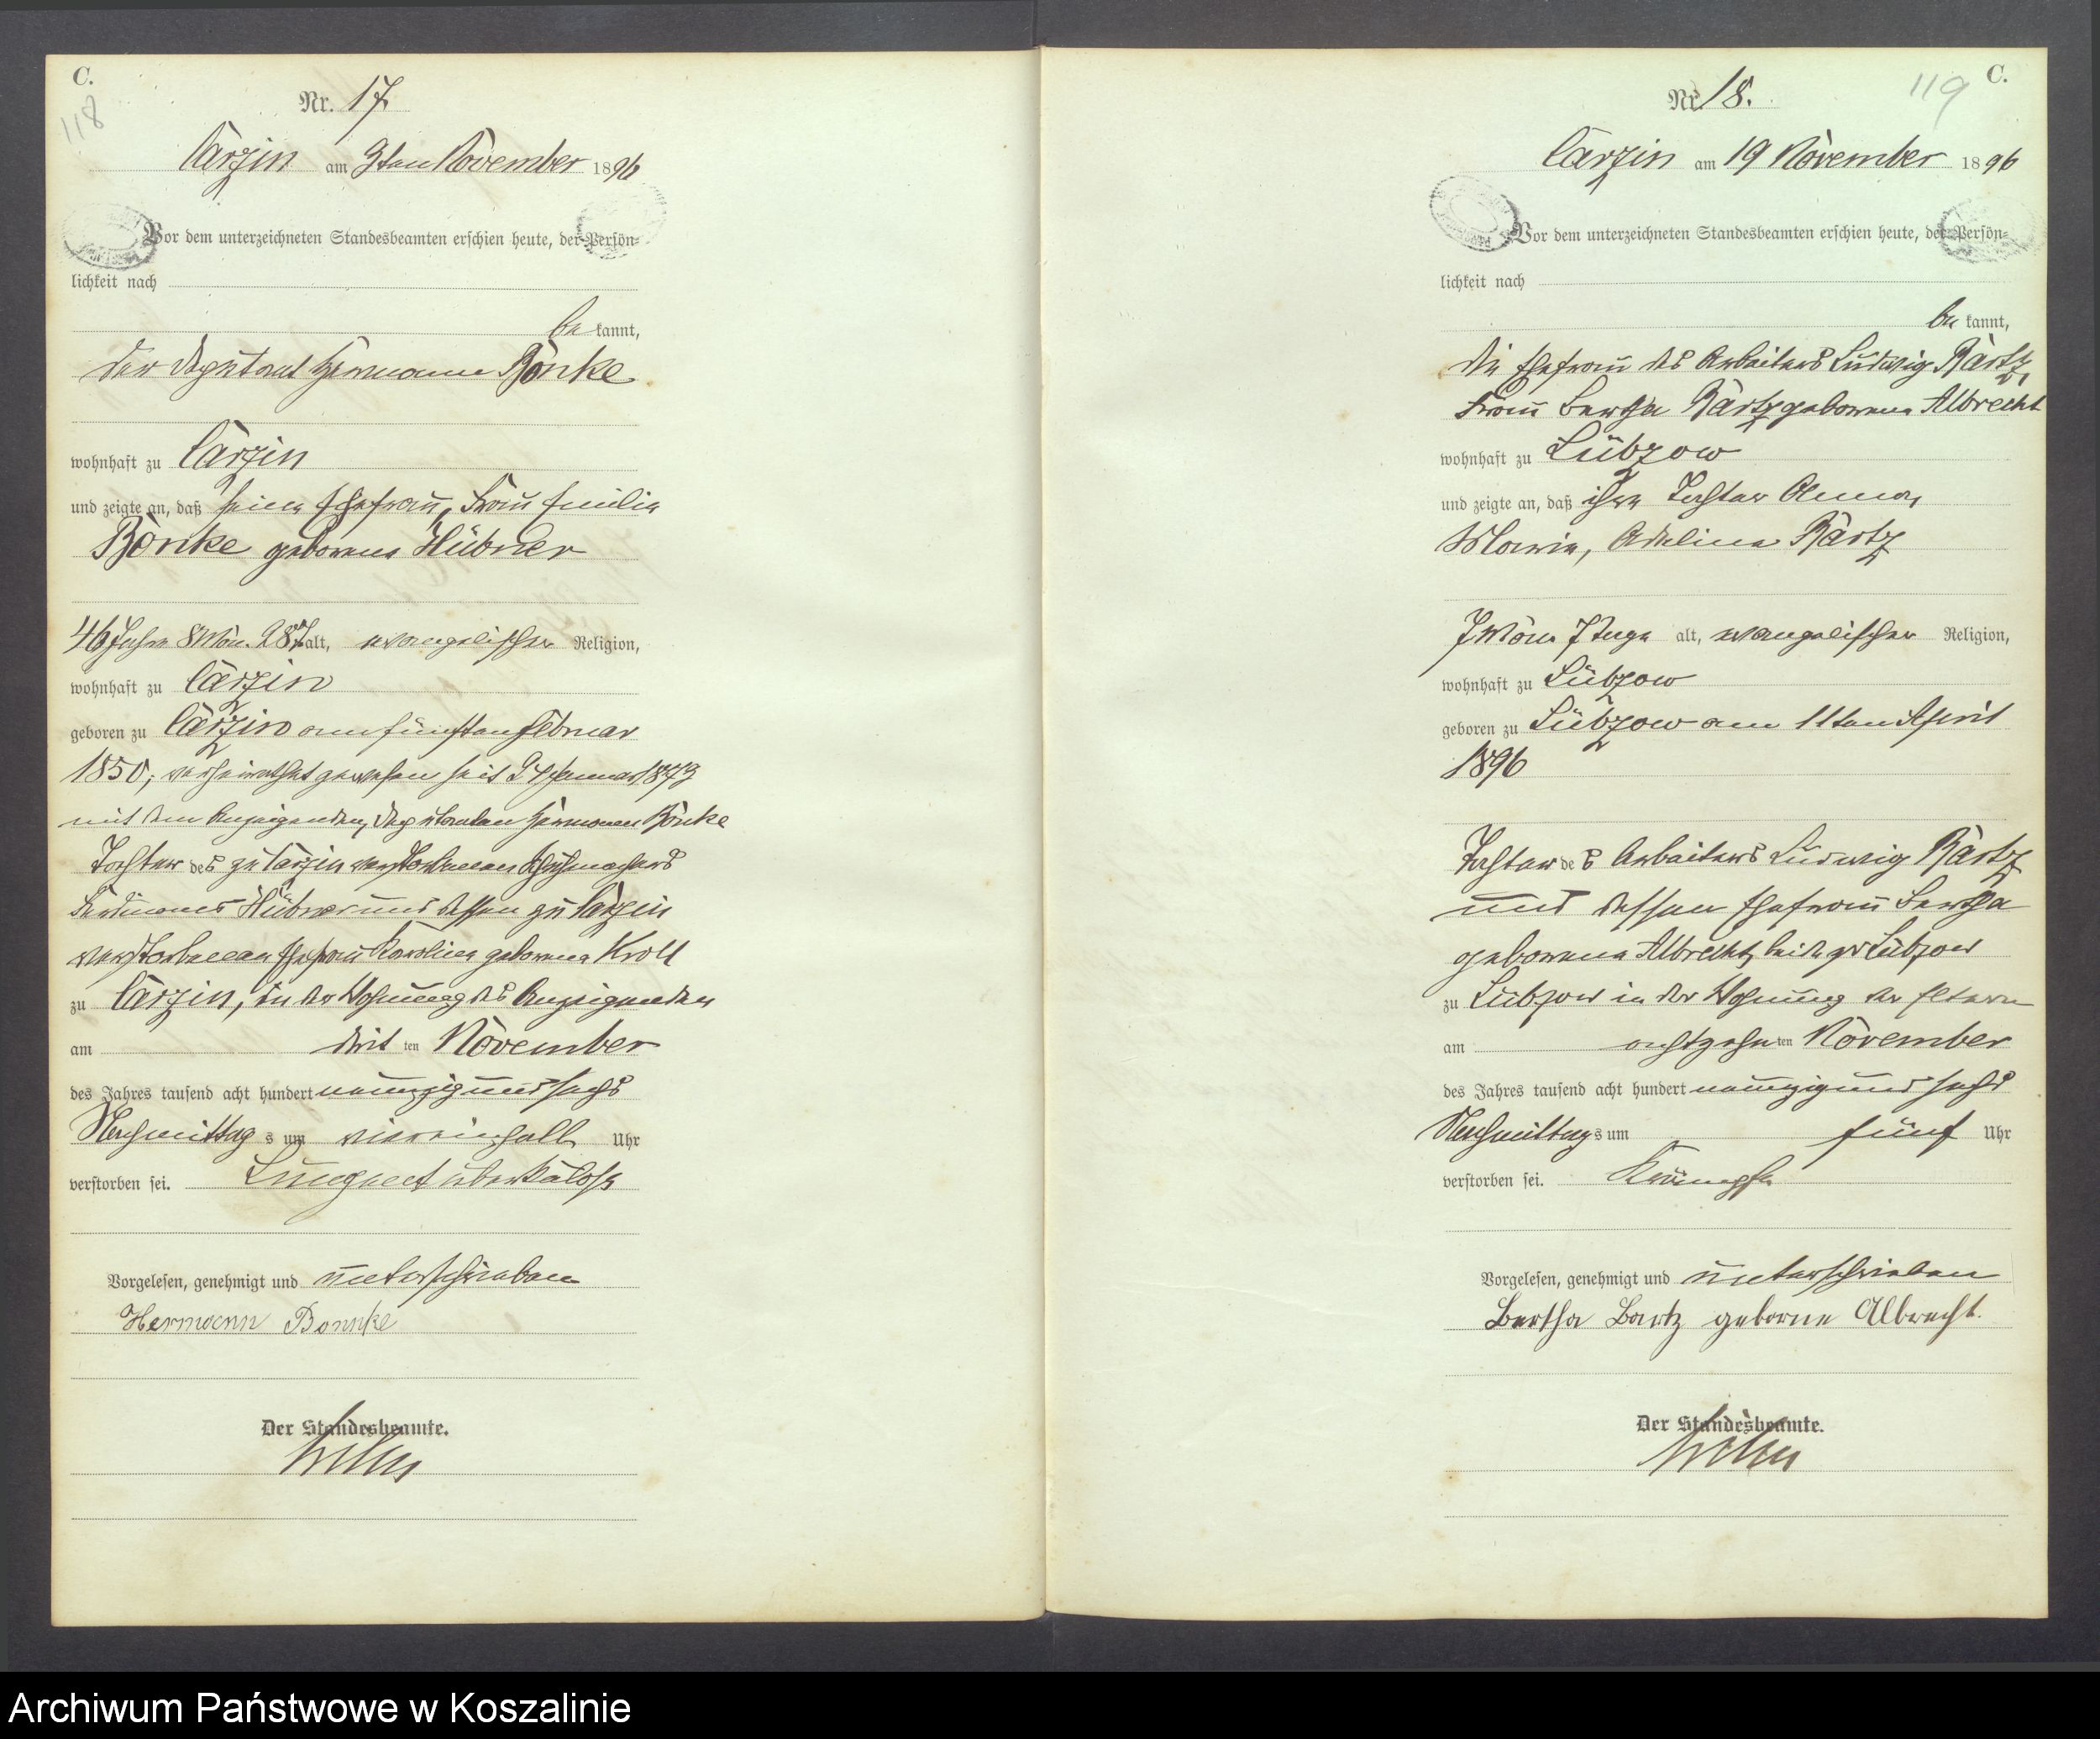 C.
118
Nr. 17
Carzin am 3ten November 1896
Vor dem unterzeichneten Standesbeamten erschien heute, der Persön-
lichkeit nach
be kannt,
der Deputant Hermann Bönke
wohnhaft zu Carzin
und zeigte an, daß seine Ehefrau, Frau Emilie
Bönke geborene Hübner
46 Jahre 8 Mon. 28 T alt, evangelischer Religion,
wohnhaft zu Carzin
geboren zu Carzin am fünften Februar
1850, verheirathet gewesen seit Januar 1873
mit dem Anzeigenden, Deputanten Hermann Bönke
Tochter des zu Carzin verstorbenen Schuhmachers
Ferdinand Hübner und dessen zu Carzin
verstorbenen Ehefrau Karoline geborene Kroll
zu Carzin, in der Wohnung des Anzeigenden
am drit ten November
des Jahres tausend acht hundert neunzig und sechs
Nachmittag s um viereinhalb Uhr
verstorben sei.
Vorgelesen, genehmigt und unterschrieben
Hermann Bonnke
Der Standesbeamte.
C.
119
Nr. 18.
Carzin am 19 November 1896
Vor dem unterzeichneten Standesbeamten erschien heute, der Persön-
lichkeit nach
be kannt,
die Ehefrau des Arbeiters Ludwig Bartz,
Frau Bertha Bartz geborene Albrecht
wohnhaft zu Lübzow
und zeigte an, daß ihre Tochter Anna,
Marie, Adeline Bartz
7 Mon. 7 Tage alt, evangelischer Religion,
wohnhaft zu Lübzow
geboren zu Lübzow am 11ten April
1896
Tochter des Arbeiters Ludwig Bartz
und dessen Ehefrau Bertha
geborene Albrecht, beide zu Lübzow
zu Lübzow in der Wohnung der Eltern
am achtzehn ten November
des Jahres tausend acht hundert neunzig und sechs
Nachmittag s um fünf Uhr
verstorben sei. Krämpfe
Vorgelesen, genehmigt und unterschrieben
Bertha Bartz geborne Albrecht.
Der Standesbeamte.
Archiwum Państwowe w Koszalinie